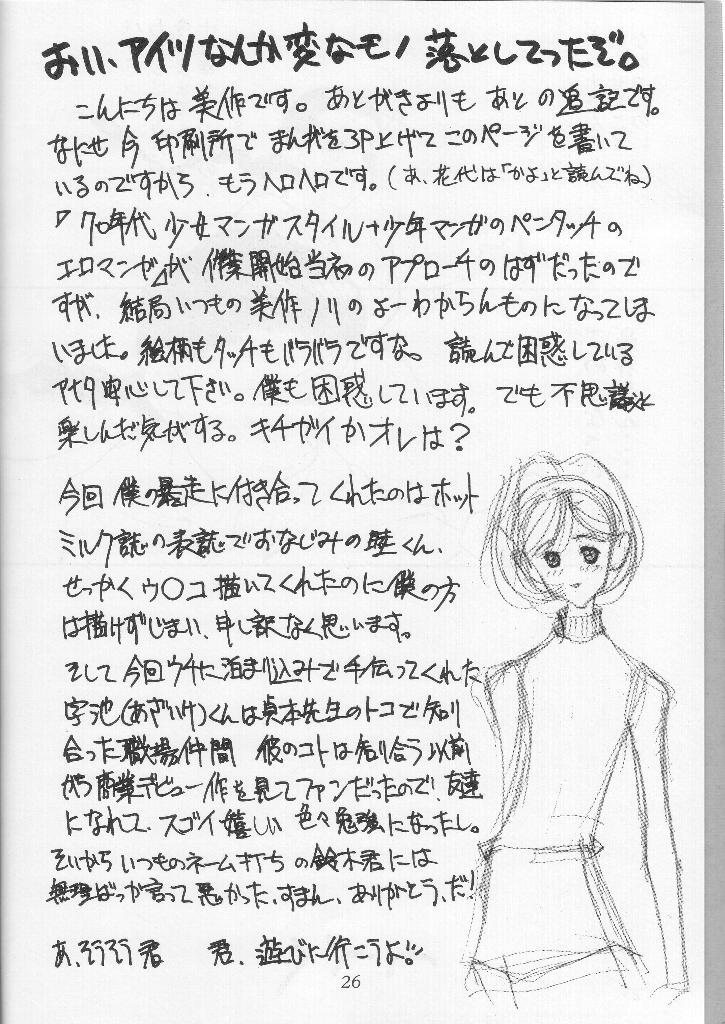 おいい、アイツなんか変なモノ落としてったぞ。
こんにちは美作です。あとがきよりもあとの追記です。
なにせ今印刷所でまんがを3P上げてこのページを書いて
いるのですから、もうヘロヘロです。(あ、花代は「かよ」と読んでね)
『70年代少女マンガスタイル+少年マンガのペンタッチの
エロマンガ』が僕業開始当初のアプローチのはずだったので
すが、結局いつもの美作ノリのよーわからんものになってしま
いました。絵柄もタッチもバラバラですな。読んで困惑している
アナタ安心して下さい。僕も困惑しています。でも不思議と
楽しんだ気がする。キチガイかオレは?
今回僕の暴走に付き合ってくれたのはホット
ミルク誌の表誌でおなじみの睦くん、
せっかくウ〇コ描いてくれたのに僕の方
は描けずじまい、申し訳なく思います。
そして今回ウチに泊まり込みで手伝ってくれた
字池(あざいけ)くんは貞本先生のトコで知り
合った職場仲間 彼のコトは知り合う以前
から商業デビュー作を見てファンだったので、友達
になれて、スゴイ嬉しい 色々勉強になったし。
それからいつものネーム打ちの鈴木君には
無理ばっか言って悪かった、すまん、ありがとう、だ!
あ、そうそう君 君、遊びに行こうよ!!
26